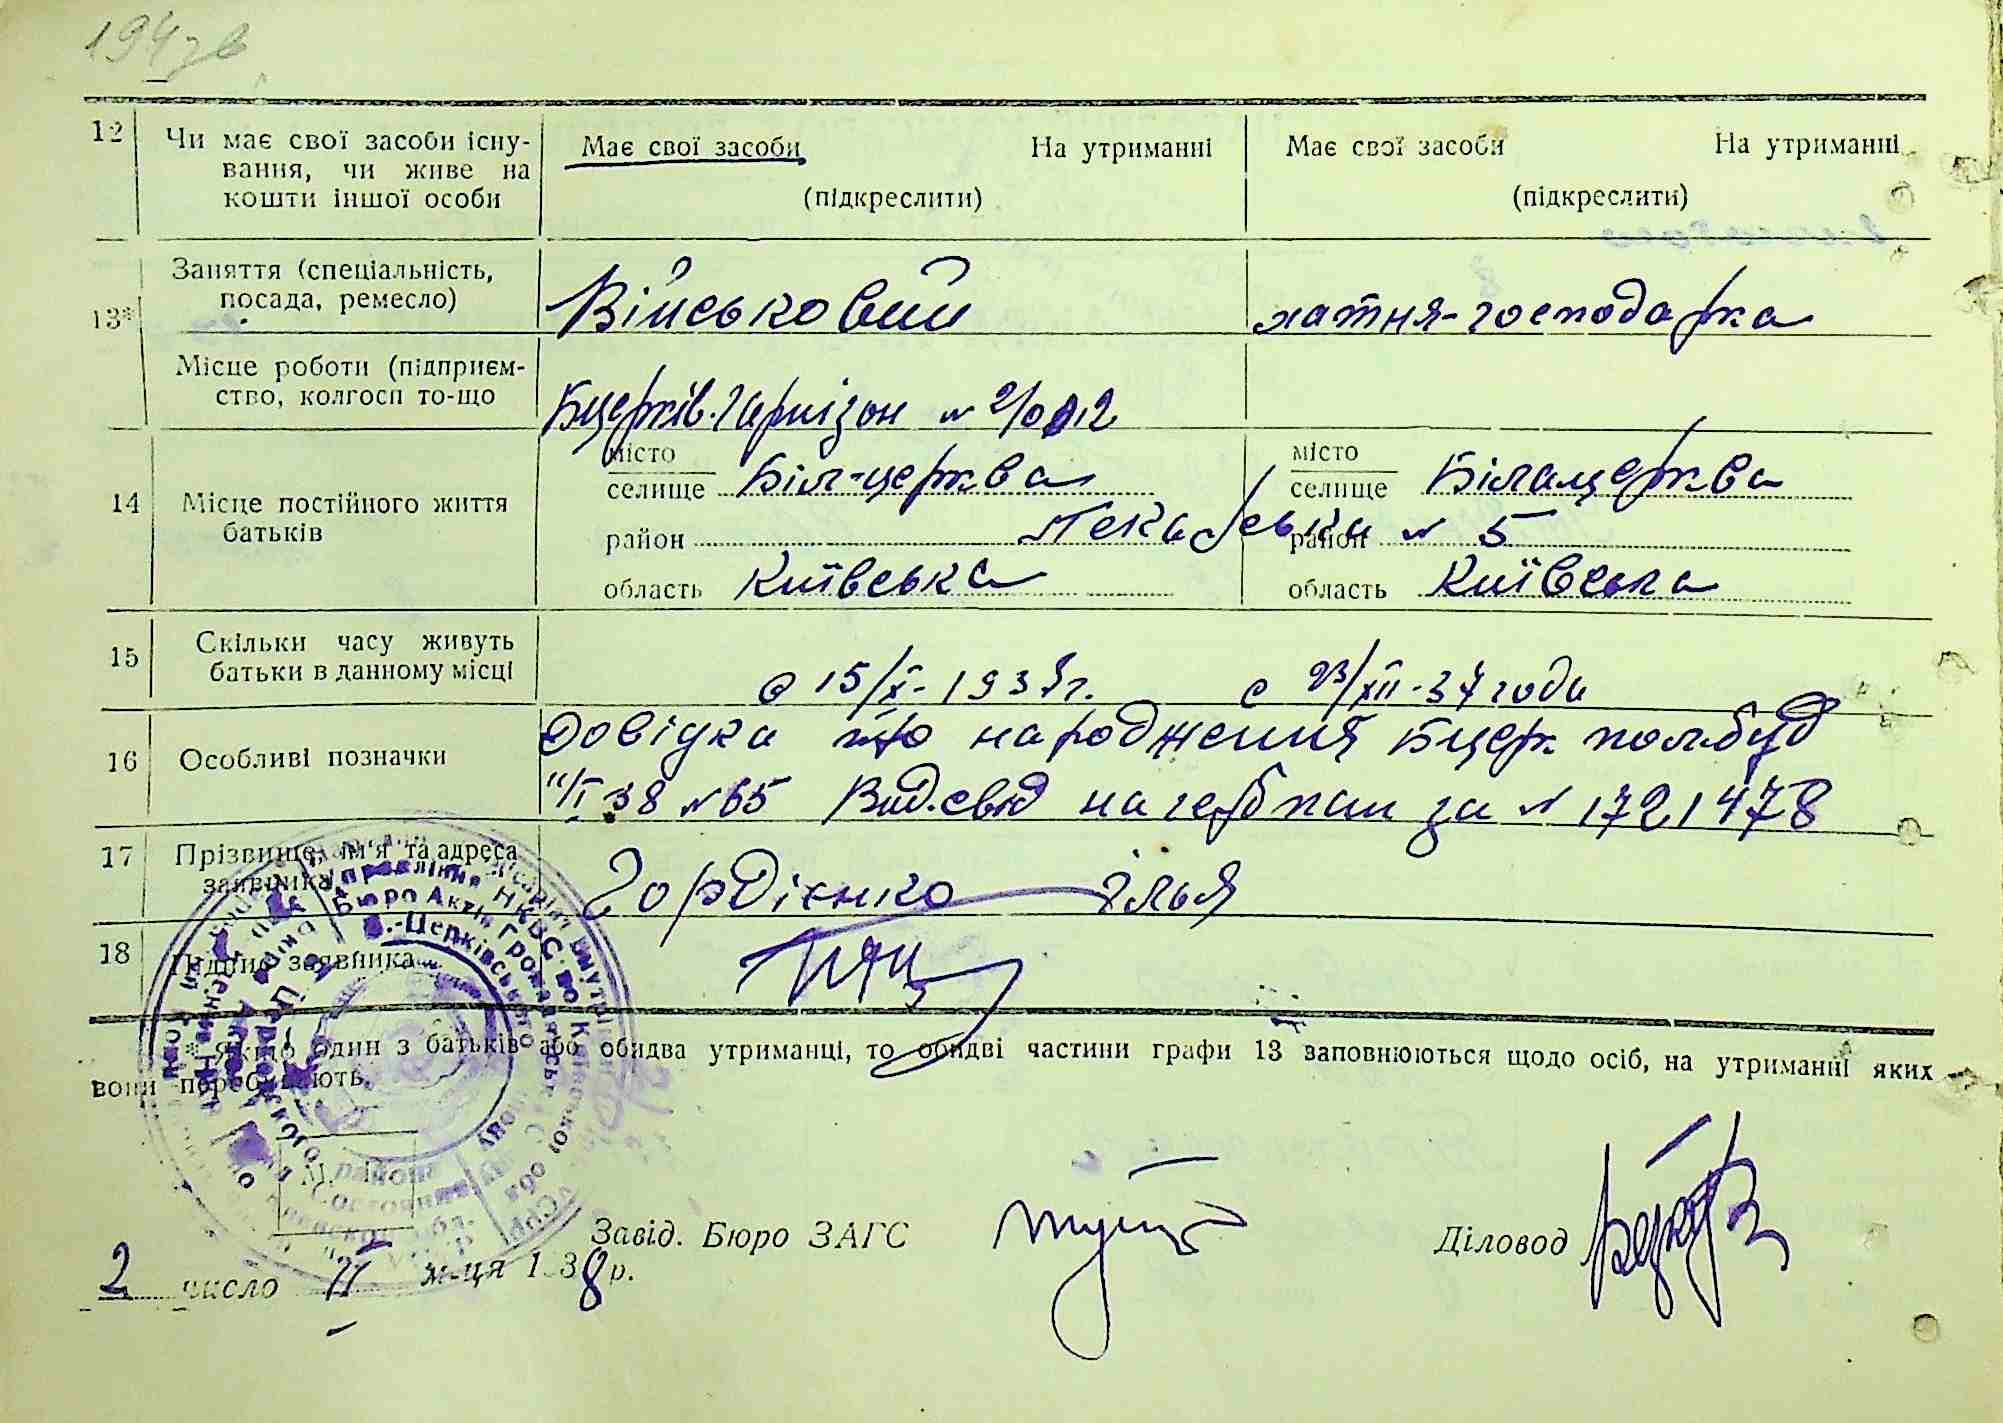 194зв
12 Чи має свої засоби існу-
вання, чи живе на
кошти іншої особи
Має свої засоби На утриманні
(підкреслити)
Має свої засоби На утриманні
(підкреслити)
13* Заняття (спеціальність,
посада, ремесло)
Військовий
хатня-господарка
Місце роботи (підприєм-
ство, колгосп то-що
Бцерків. Гарнізон №
14 Місце постійного життя
батьків
місто
селище Біл-церква
район
область Київська
місто
селище Білацерква
район № 5
область Київська
15 Скільки часу живуть
батьки в данному місці
с 15/X-1937г. с 23/XII-37 года
16 Особливі позначки
Довідка про народження Бцерк полбуд
11/I 38 №65 Вид. свід на гербпап за № 1721478
17 Прізвище, ім'я та адреса
заявника
Гордієнко Ілья
18 Підпис заявника
* Якщо один з батьків або обидва утриманці, то обидві частини графи 13 заповнюються щодо осіб, на утриманні яких
вони перебувають.
Управління НКВС по Київській обл
Бюро Актів Громадянськ
Б.-Церківського
района
М. П.
Завід. Бюро ЗАГС
Діловод
2 число II м-ця 1938р.